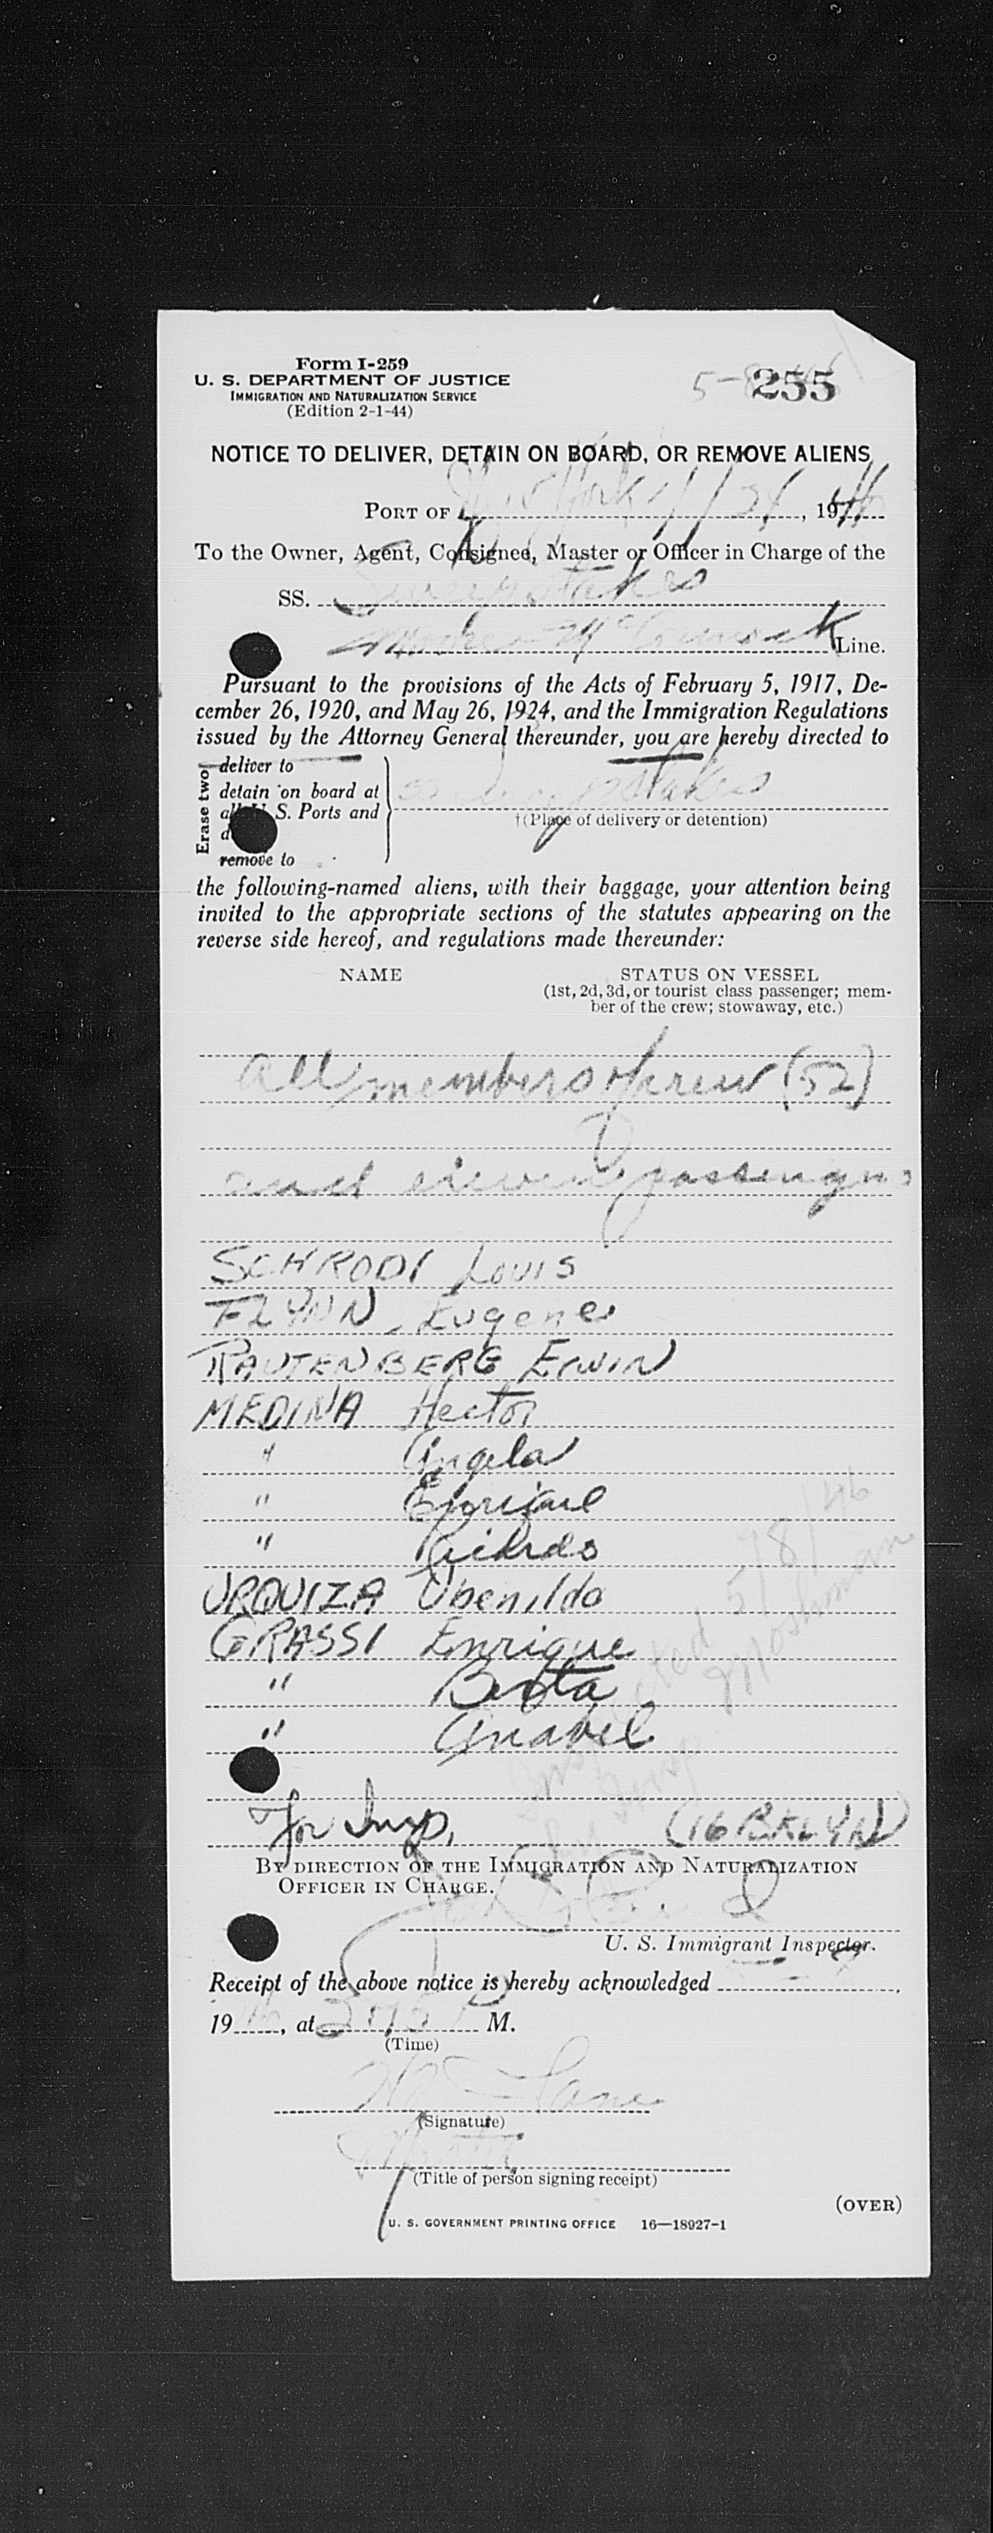 Form I-259
U. S. DEPARTMENT OF JUSTICE
IMMIGRATION AND NATURALIZATION SERVICE
(Edition 2-1-44)
255
NOTICE TO DELIVER, DETAIN ON BOARD, OR REMOVE ALIENS
PORT OF York, 19
To the Owner, Agent, Consignee, Master or Officer in Charge of the
SS.
Line.
Pursuant to the provisions of the Acts of February 5, 1917, De-
cember 26, 1920, and May 26, 1924, and the Immigration Regulations
issued by the Attorney General thereunder, you are hereby directed to
Erase two
deliver to
detain on board at
S. Ports and
remove to
†(Place of delivery or detention)
the following-named aliens, with their baggage, your attention being
invited to the appropriate sections of the statutes appearing on the
reverse side hereof, and regulations made thereunder:
NAME STATUS ON VESSEL
(1st, 2d, 3d, or tourist class passenger; mem-
ber of the crew; stowaway, etc.)
All members of crew (52)
and eleven passengers
SCHRODI Louis
FLYNN, Eugene
RAUTENBERG ERWIN
MEDINA Hector
" Angela
" Enrique
" Ricardo
URQUIZA Ubenildo
GRASSI Enrique
" Berta
" Anabel
5/8/46
For Insp. (16 BKLYN)
BY DIRECTION OF THE IMMIGRATION AND NATURALIZATION
OFFICER IN CHARGE.
U. S. Immigrant Inspector.
Receipt of the above notice is hereby acknowledged
19, at M.
(Time)
(Signature)
(Title of person signing receipt)
(OVER)
U. S. GOVERNMENT PRINTING OFFICE 16—18927-1